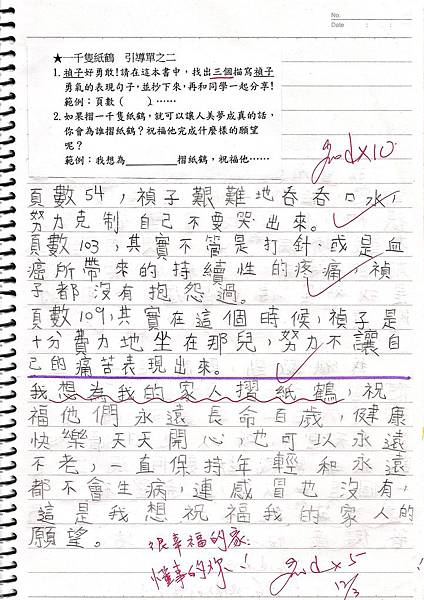 No.
Date : :
★一千隻紙鶴 引導單之二
1. 禎子好勇敢！請在這本書中，找出三個描寫禎子
勇氣的表現句子，並抄下來，再和同學一起分享！
範例：頁數（ ）……
2. 如果摺一千隻紙鶴，就可以讓人美夢成真的話，
你會為誰摺紙鶴？祝福他完成什麼樣的願望
呢？
範例：我想為________摺紙鶴，祝福他……
Good x10
頁數54，禎子艱難地吞吞口水，
努力克制自己不要哭出來。
頁數103，其實不管是打針、或是血
癌所帶來的持續性的疼痛，禎
子都沒有抱怨過。
頁數109，其實在這個時候，禎子是
十分費力地坐在那兒，努力不讓自
己的痛苦表現出來。
我想為我的家人摺紙鶴，祝
福他們永遠長命百歲，健康
快樂，天天開心，也可以永遠
不老，一直保持年輕和永遠
都不會生病，連感冒也沒有，
這是我想祝福我的家人的
願望。
很幸福的家
懂事的妳！
Good x5
12/3